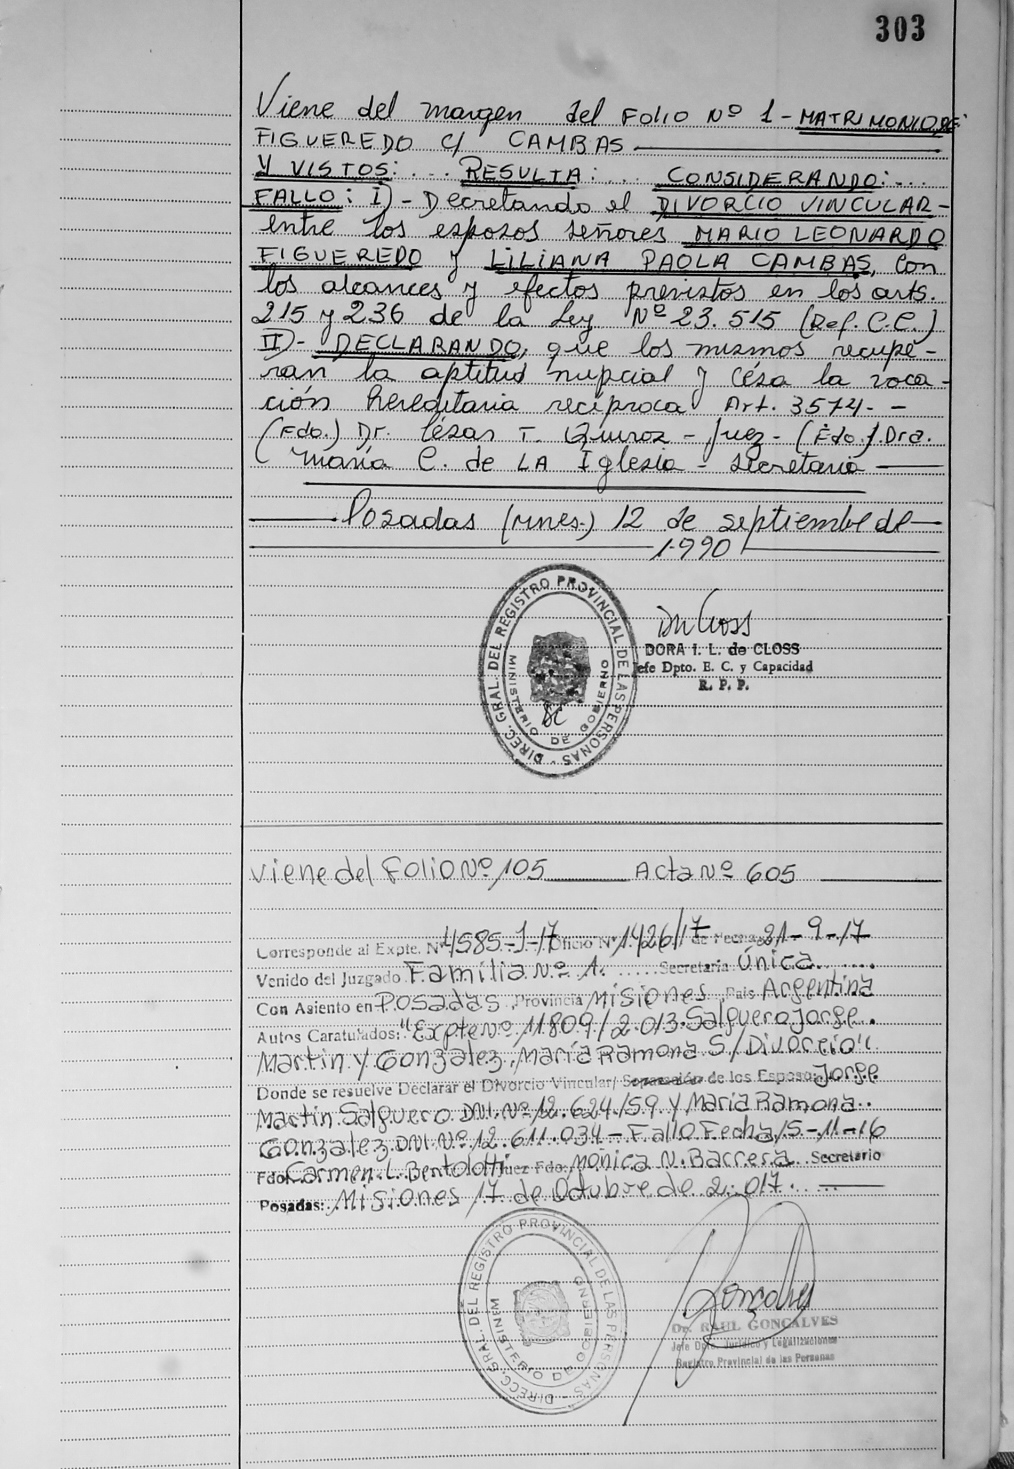 303
Viene del margen del Folio Nº 1 - MATRIMONIO DE:
FIGUEREDO C/ CAMBAS
Y VISTOS: ... RESULTA: ... CONSIDERANDO: ...
FALLO: I) - Decretando el DIVORCIO VINCULAR -
entre los esposos señores MARIO LEONARDO
FIGUEREDO y LILIANA PAOLA CAMBAS, con
los alcances y efectos previstos en los arts.
215 y 236 de la Ley Nº 23.515 (Ref. C.C.)
II) - DECLARANDO, que los mismos recupe-
ran la aptitud nupcial y césa la voca-
ción hereditaria recíproca Art. 3574. -
(Fdo.) Dr. César T. Quiroz - Juez - (Fdo.). Dra.
María C. de LA Iglesia - Secretaria
Posadas (mnes.) 12 de septiembre de
1.990
DIREC. GRAL. DEL REGISTRO PROVINCIAL DE LAS PERSONAS -
MINISTERIO DE GOBIERNO
DORA I. L. de CLOSS
Jefe Dpto. E. C. y Capacidad
R. P. P.
Viene del Folio Nº 105 Acta Nº 605
Corresponde al Expte. Nº 4585-J-17 Oficio Nº 1426/17 de Fecha 21-9-17
Venido del Juzgado Familia Nº 1. Secretaria Única
Con Asiento en Posadas Provincia Misiones País Argentina
Autos Caratulados: "Expte Nº 11809/2.013 Salguero Jorge
Martin Y Gonzalez, María Ramona S/Divorcio".
Donde se resuelve Declarar el Divorcio Vincular/ Separación de los Esposo: Jorge
Martin Salguero DNI. Nº 12.624.159 y María Ramona
Gonzalez DNI. Nº 12.611.034 - Fallo Fecha 15-11-16
Fdo Carmen L. Bentolotti Juez Fdo: Monica N. Barrera Secretario
Posadas: Misiones 17 de Octubre de 2.017.
DIRECC. GRAL. DEL REGISTRO PROVINCIAL DE LAS PERSONAS -
MINISTERIO DE GOBIERNO
Goncalves
Dr. RAUL GONCALVES
Jefe Dpto. Jurídico y Legalizaciones
Registro Provincial de las Personas